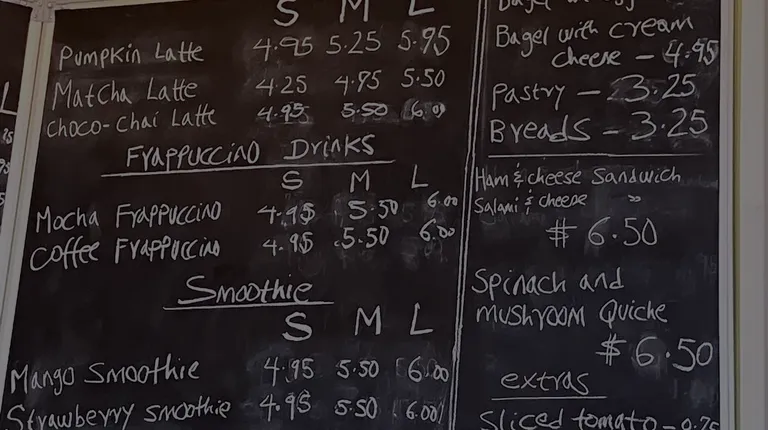 S M L
Pumpkin Latte 4.95 5.25 5.95
Matcha Latte 4.25 4.95 5.50
Choco-Chai Latte 4.95 5.50 6.00
Frappuccino Drinks
S M L
Mocha Frappuccino 4.95 5.50 6.00
Coffee Frappuccino 4.95 5.50 6.00
Smoothie
S M L
Mango Smoothie 4.95 5.50 6.00
Strawberry smoothie 4.95 5.50 6.00
Bagel with cream
cheese - 4.95
Pastry - 3.25
Breads - 3.25
Ham & cheese Sandwich
Salami & cheese "
$ 6.50
Spinach and
mushroom Quiche
$ 6.50
extras
Sliced tomato - 0.75